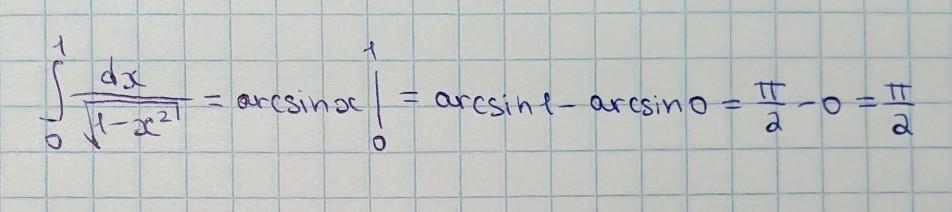 ∫₀¹ dx/√(1-x²) = arcsinx |₀¹ = arcsin1 - arcsin0 = π/2 - 0 = π/2